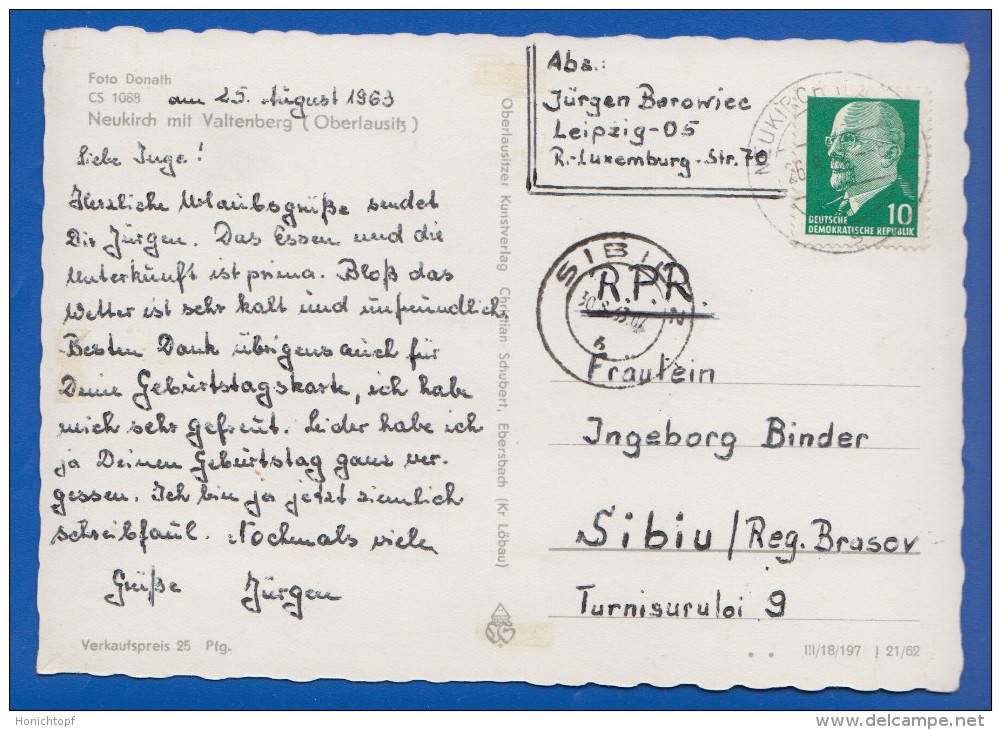 Foto Donath
CS 1088
am 25. August 1963
Neukirch mit Valtenberg (Oberlausitz)
Liebe Inge!
Herzliche Urlaubsgrüße sendet
Dir Jürgen. Das Essen und die
Unterkunft ist prima. Bloß das
Wetter ist sehr kalt und unfreundlich.
Besten Dank übrigens auch für
Deine Geburtstagskarte, ich habe
mich sehr gefreut. Leider habe ich
ja Deinen Geburtstag ganz ver-
gessen. Ich bin ja jetzt ziemlich
schreibfaul. Nochmals viele
Grüße Jürgen
Verkaufspreis 25 Pfg.
Oberlausitzer Kunstverlag Christian Schubert, Ebersbach (Kr Löbau)
Abs.:
Jürgen Borowiec
Leipzig-O5
R.-Luxemburg-Str. 70
NEUKIRCH
26
10
DEUTSCHE
DEMOKRATISCHE REPUBLIK
SIBIU
30.8.63.02
R.P.R.
Fräulein
Ingeborg Binder
Sibiu / Reg. Brasov
Turnisurului 9
III/18/197 J 21/62
Honichtopf
www.delcampe.net